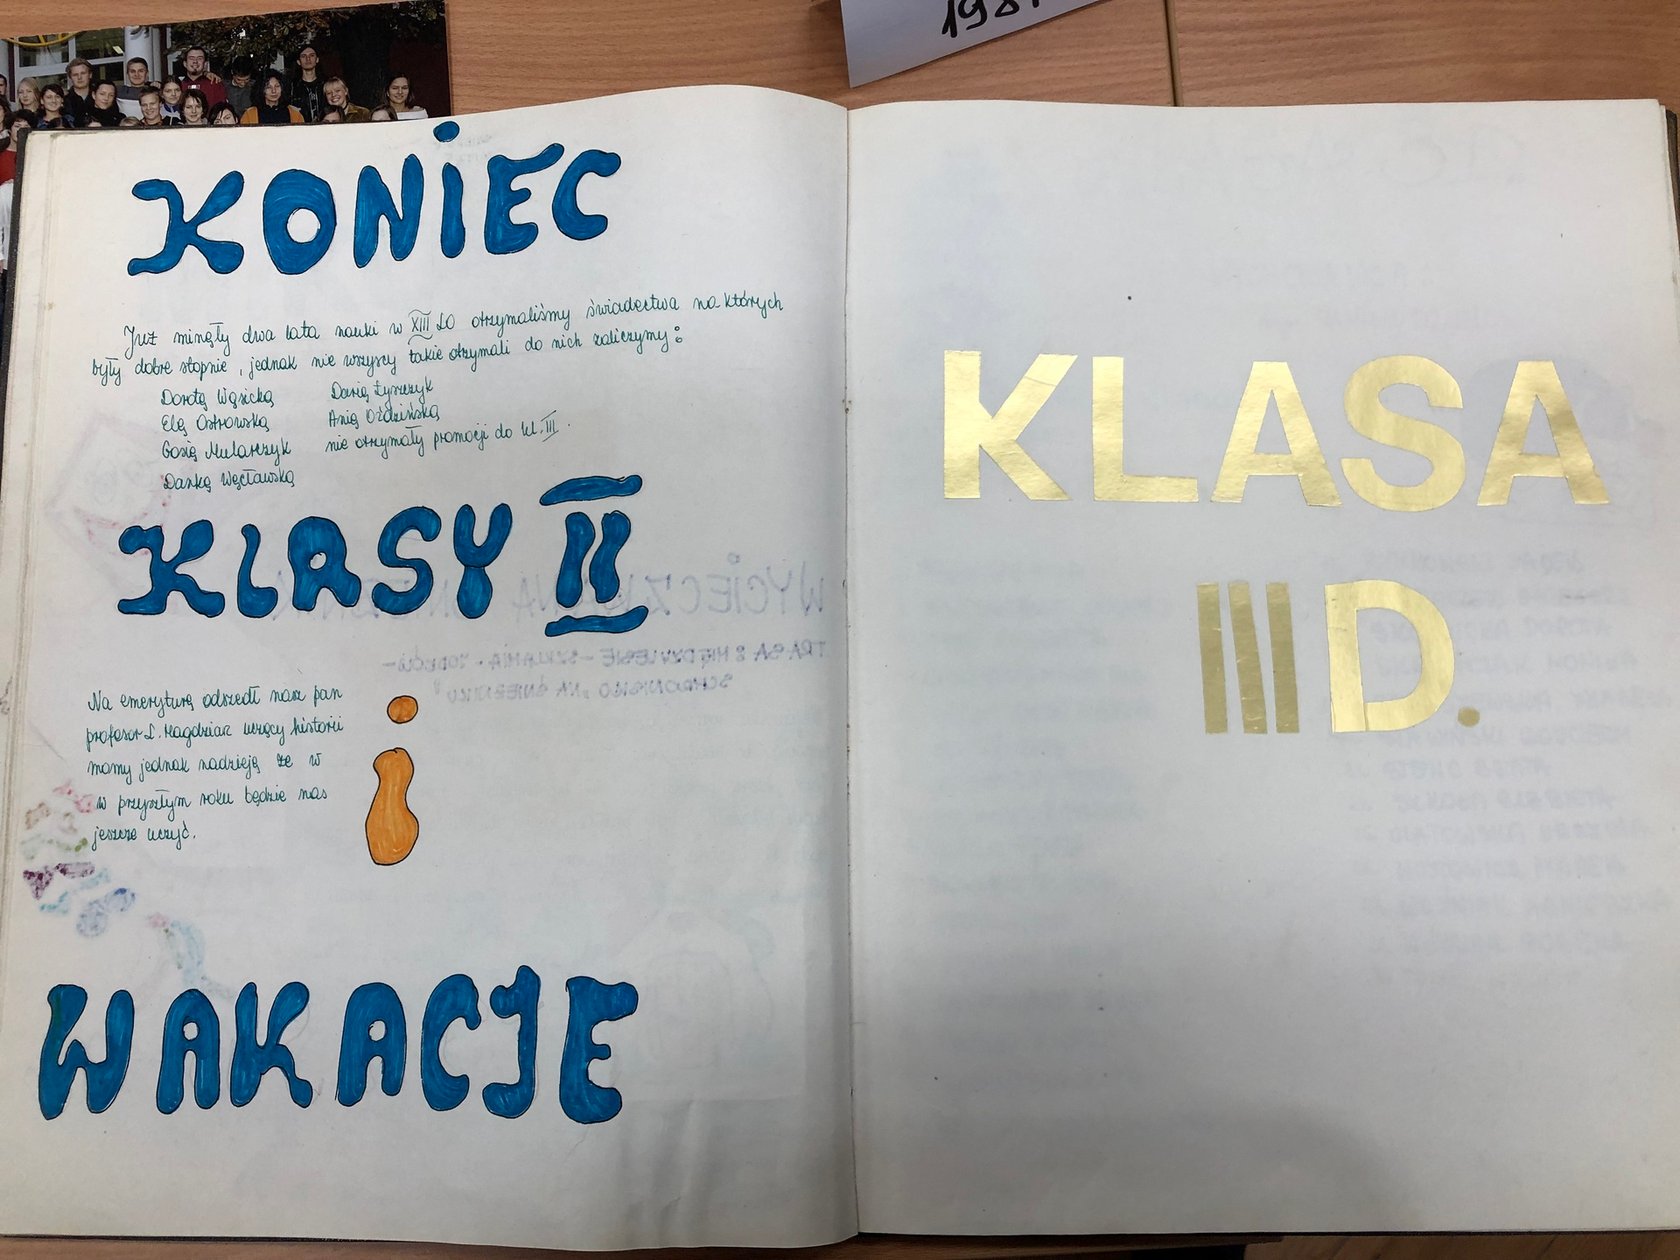 KONIEC
Już minęły dwa lata nauki w XIII LO otrzymaliśmy świadectwa na których
były dobre stopnie, jednak nie wszyscy takie otrzymali do nich zaliczymy:
Dorotę Wąsicką Darię Łyszczyk
Elę Ostrowską Anię
Gosię Mularczyk nie otrzymały promocji do kl. III.
Dankę Węcławską
KLASY II
Na emeryturę odszedł nasz pan
profesor L. Magdziarz uczący historii
mamy jednak nadzieję że w
w przyszłym roku będzie nas
jeszcze uczyć.
i
WAKACJE
KLASA
III D.
WYCIECZKA NA
TRASA: